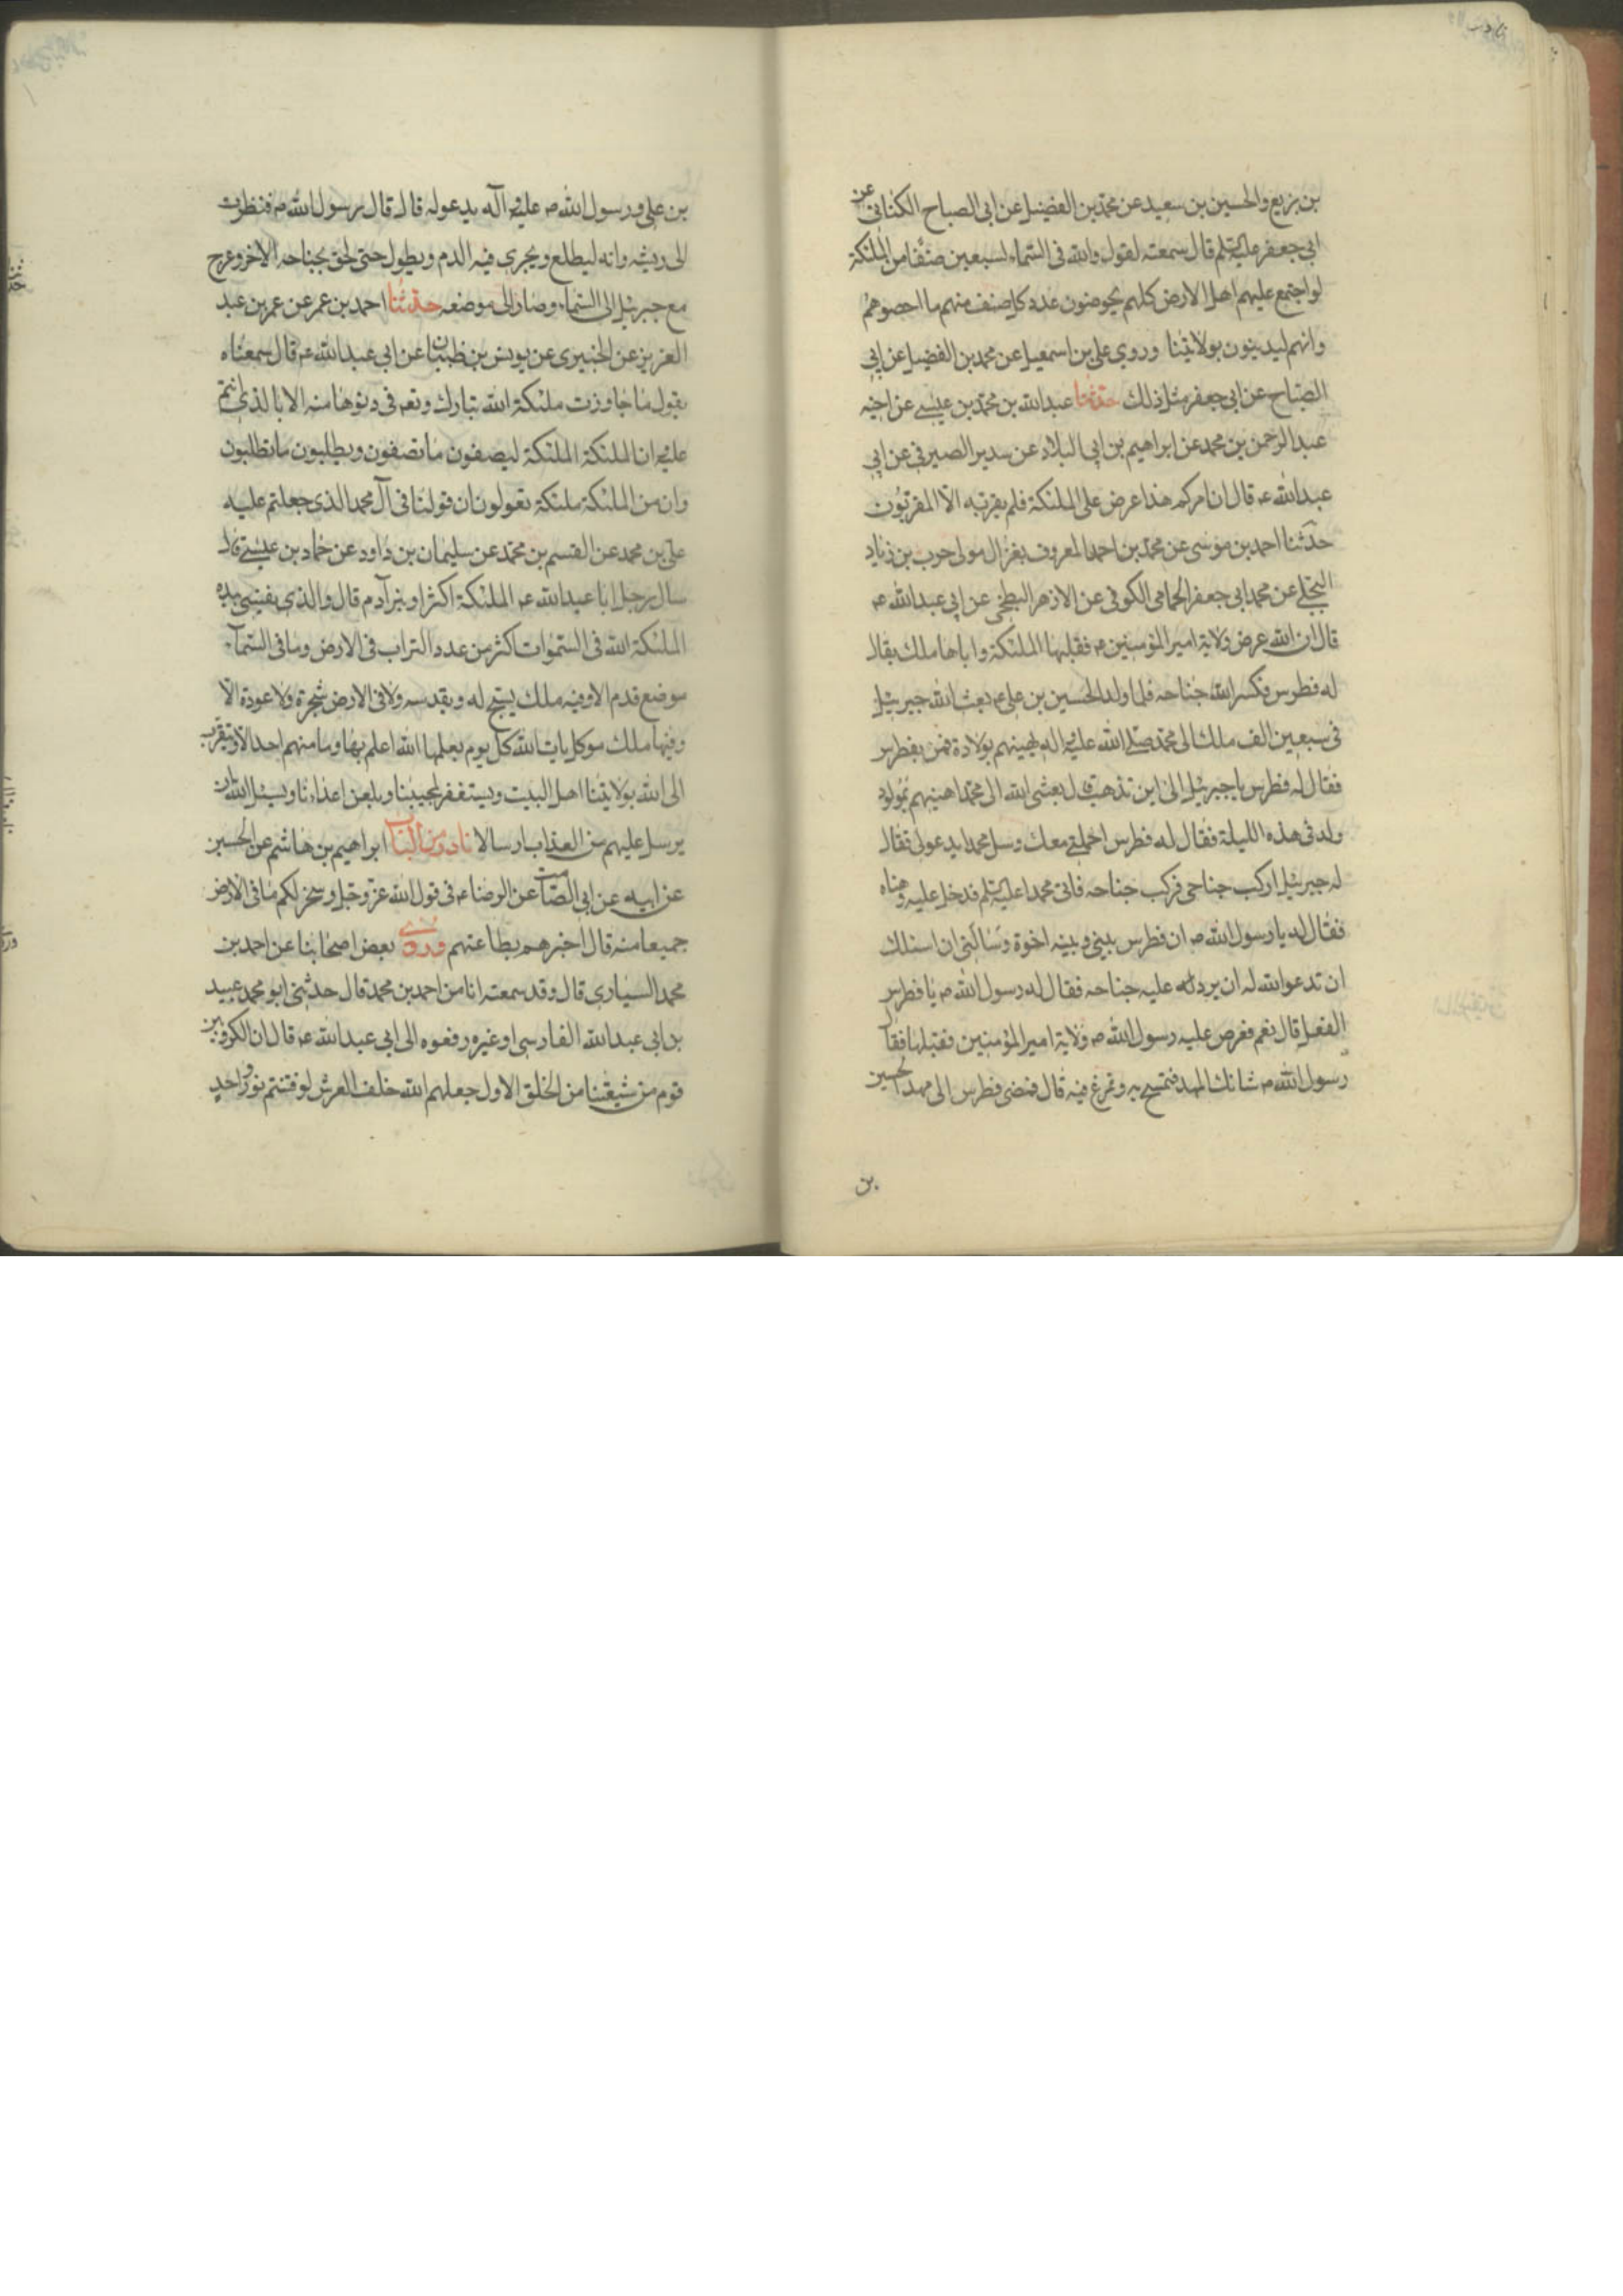 بن بزيع والحسين بن سعيد عن محمد بن الفضيل عن ابى الصباح الكنانى عن
ابى جعفر عليه السلم قال سمعته لقول والله فى السماء لسبعين صنفا من الملئكة
لو اجتمع عليهم اهل الارض كلهم يحوضون عدد كل صنف منهم ما احصوهم
وانهم ليدينون بولايتنا وروى على بن اسمعيل عن محمد بن الفضيل عن ابى
الصباح عن ابى جعفر مثل ذلك حدثنا عبدالله بن محمد بن عيسى عن اخيه
عبدالرحمن بن محمد عن ابراهيم بن ابى البلاد عن سدير الصيرفى عن ابى
عبدالله ع قال ان امركم هذا عرض على الملئكة فلم يقربه الا المقربون
حدثنا احمد بن موسى عن محمد بن احمد المعروف بغزال مولى حرب بن زياد
البجلى عن محمد ابى جعفر الحمامى الكوفى عن الازهر البطخى عن ابى عبدالله ع
قال ان الله عرض ولاية امير المؤمنين ع فقبلها الملئكة واباها ملك يقال
له فطرس فكسر الله جناحه فلما ولد الحسين بن على ع بعث الله جبرئيل
فى سبعين الف ملك الى محمد صلى الله عليه واله لهينهم بولادة فمن بفطرس
فقال له فطرس يا جبرئيل الى اين تذهب قال بعثنى الله الى محمد اهنيهم بمولود
ولد فى هذه الليلة فقال له فطرس احملنى معك وسل محمدا يدعو لى فقال
له جبرئيل اركب جناحى فركب جناحه فاتى محمدا عليه السلم فدخل عليه وهناه
فقال له يا رسول الله ص ان فطرس بينى وبينه اخوة وسألنى ان اسئلك
ان تدعوا الله له ان يرد عليه جناحه فقال له رسول الله ص يا فطرس
الفعل قال نعم فعرض عليه رسول الله ص ولاية امير المؤمنين فقبلها فقال
رسول الله ص شانك المهد فتمسح به وتمرغ فيه قال فمضى فطرس الى مهد الحسين
بن
بن على ورسول الله ص عليه وآله يدعو له قال قال رسول الله ص فنظرت
الى ريشه وانه ليطلع ويجرى فيه الدم ويطول حتى لحق بجناحه الاخر وعرج
مع جبرئيل الى السماء وصار الى موضعه حدثنا احمد بن عمر عن عمر بن عبد
العزيز عن الخيبرى عن يونس بن ظبيان عن ابى عبدالله ع قال سمعناه
يقول ما جاوزت ملئكة الله تبارك وتعه فى دنوها منه الا بالذى انتم
عليه ان الملئكة الملئكة ليصفون ما تصفون ويطلبون ما تطلبون
وان من الملئكة ملئكة تعولون ان قولنا فى آل محمد الذى جعلتم عليه
على بن محمد عن القسم بن محمد عن سليمان بن داود عن حماد بن عيسى قال
سال رجل ابا عبدالله ع الملئكة اكثر او بنى آدم قال والذى نفسى بيده
الملئكة الله فى السموات اكثر من عدد التراب فى الارض وما فى السمآء
موضع قدم الا وفيه ملك يسبح له ويقدسه ولا فى الارض شجرة ولا عودة الا
وفيها ملك موكل يات الله كل يوم يعلمها الله اعلم بها وما منهم احد الا ويتقرب
الى الله بولايتنا اهل البيت ويستغفر لمحيبنا ويلعن اعداءنا ويسئل الله ان
يرسل عليهم من العذاب ارسالا نادر من الباب ابراهيم بن هاشم عن الحسين
عن ابيه عن ابى الصامت عن الرضا ع فى قول الله عز وجل وسخر لكم ما فى الارض
جميعا منه قال اخبرهم بطاعتهم وروى بعض اصحابنا عن احمد بن
محمد السيارى قال وقد سمعته انا من احمد بن محمد قال حدثنى ابو محمد عبيد
بن ابى عبدالله الفارسى او غيره رفعوه الى ابى عبدالله ع قال ان الكروبين
قوم من شيعتنا من الخلق الاول جعلهم الله خلف العرش لو قسم نور واحد